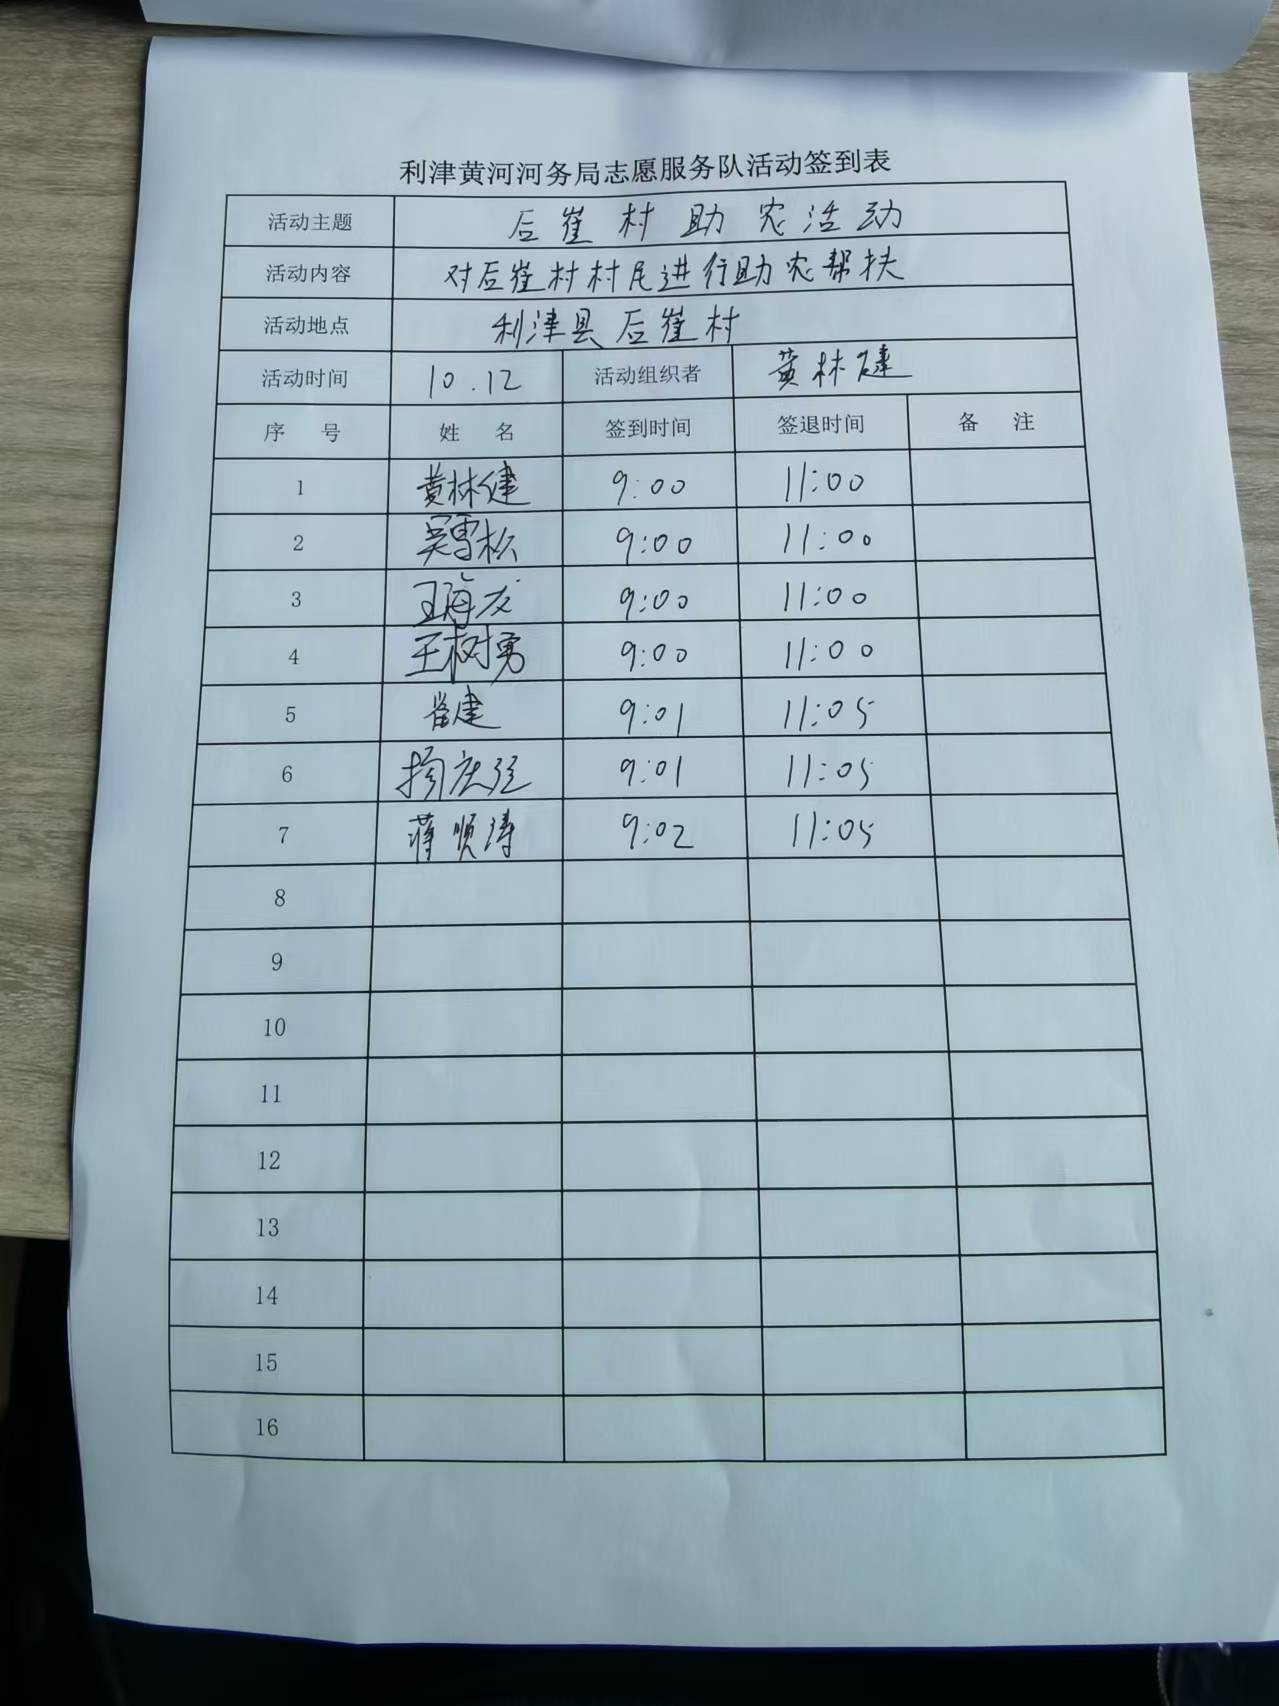 利津黄河河务局志愿服务队活动签到表
活动主题 后崔村助农活动
活动内容 对后崔村村民进行助农帮扶
活动地点 利津县后崔村
活动时间 10.12 活动组织者 黄林健
序 号 姓 名 签到时间 签退时间 备 注
1 黄林健 9:00 11:00
2 吴雪松 9:00 11:00
3 王海龙 9:00 11:00
4 王树勇 9:00 11:00
5 崔建 9:01 11:05
6 9:01 11:05
7 蒋贤涛 9:02 11:05
8
9
10
11
12
13
14
15
16